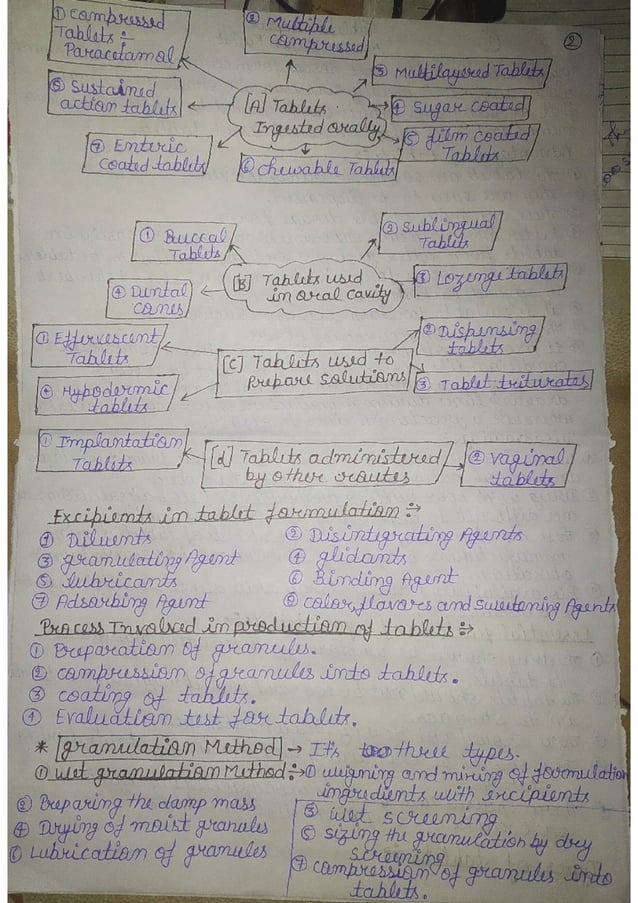 ②
① Compressed
Tablets :-
Paracetamol
② Multiple
compressed
③ Multilayered Tablets
④ Sugar coated
⑤ film coated
Tablets
⑥ chewable Tablets
⑦ Enteric
Coated tablets
⑧ Sustained
action tablets
[A] Tablets
Ingested orally
① Buccal
Tablets
② Sublingual
Tablets
③ Lozenge tablets
④ Dental
cones
[B] Tablets used
in oral cavity
① Effervescent
Tablets
② Dispensing
tablets
③ Tablet triturates
④ Hypodermic
tablets
[C] Tablets used to
Prepare solutions
① Implantation
Tablets
[d] Tablets administered
by other routes
② vaginal
tablets
Excipients in tablet formulation :→
① Diluents ② Disintigrating Agents
③ granulating Agent ④ glidants
⑤ Lubricants ⑥ Binding Agent
⑦ Adsorbing Agent ⑧ color, flavors and sweetening Agents
Process Involved in production of tablets :→
① Preparation of granules.
② compression of granules into tablets.
③ coating of tablets.
④ Evaluation test for tablets.
* granulation Method → It's three types.
① wet granulation Method :→ ① weigning and mixing of formulation
ingredients with excipients
② Preparing the damp mass
③ wet screening
④ Drying of moist granules
⑤ sizing the granulation by dry
screening
⑥ Lubrication of granules
⑦ compression of granules into
tablets.